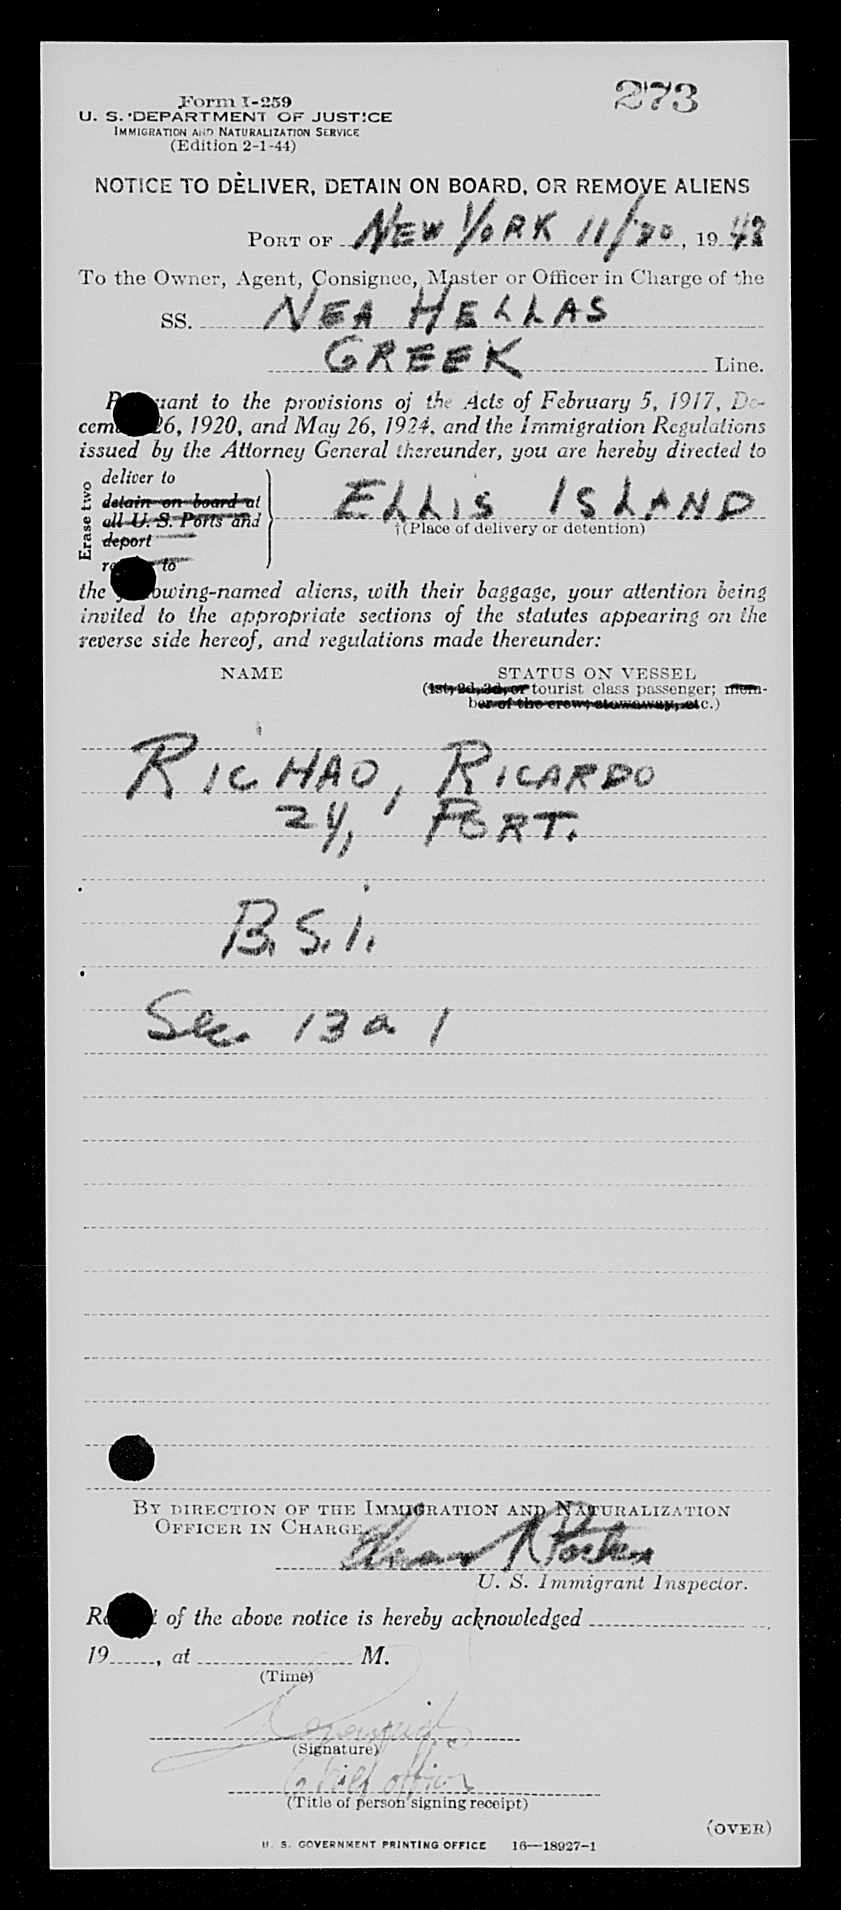 273
Form I-259
U. S. DEPARTMENT OF JUSTICE
IMMIGRATION AND NATURALIZATION SERVICE
(Edition 2-1-44)
NOTICE TO DELIVER, DETAIN ON BOARD, OR REMOVE ALIENS
PORT OF NEW YORK 11/20, 1948
To the Owner, Agent, Consignee, Master or Officer in Charge of the
SS. NEA HELLAS
GREEK Line.
to the provisions of the Acts of February 5, 1917, De-
26, 1920, and May 26, 1924, and the Immigration Regulations
issued by the Attorney General thereunder, you are hereby directed to
Erase two
deliver to
detain on board at
all U. S. Ports and
deport
to
ELLIS ISLAND
†(Place of delivery or detention)
the following-named aliens, with their baggage, your attention being
invited to the appropriate sections of the statutes appearing on the
reverse side hereof, and regulations made thereunder:
NAME STATUS ON VESSEL
(1st, 2d, 3d, or tourist class passenger; mem-
ber of the crew; stowaway, etc.)
RICHAO, RICARDO
24, PORT.
B.S.I.
Sec. 13 a 1
BY DIRECTION OF THE IMMIGRATION AND NATURALIZATION
OFFICER IN CHARGE.
U. S. Immigrant Inspector.
of the above notice is hereby acknowledged
19 , at M.
(Time)
(Signature)
Chief officer
(Title of person signing receipt)
(OVER)
U. S. GOVERNMENT PRINTING OFFICE 16—18927-1